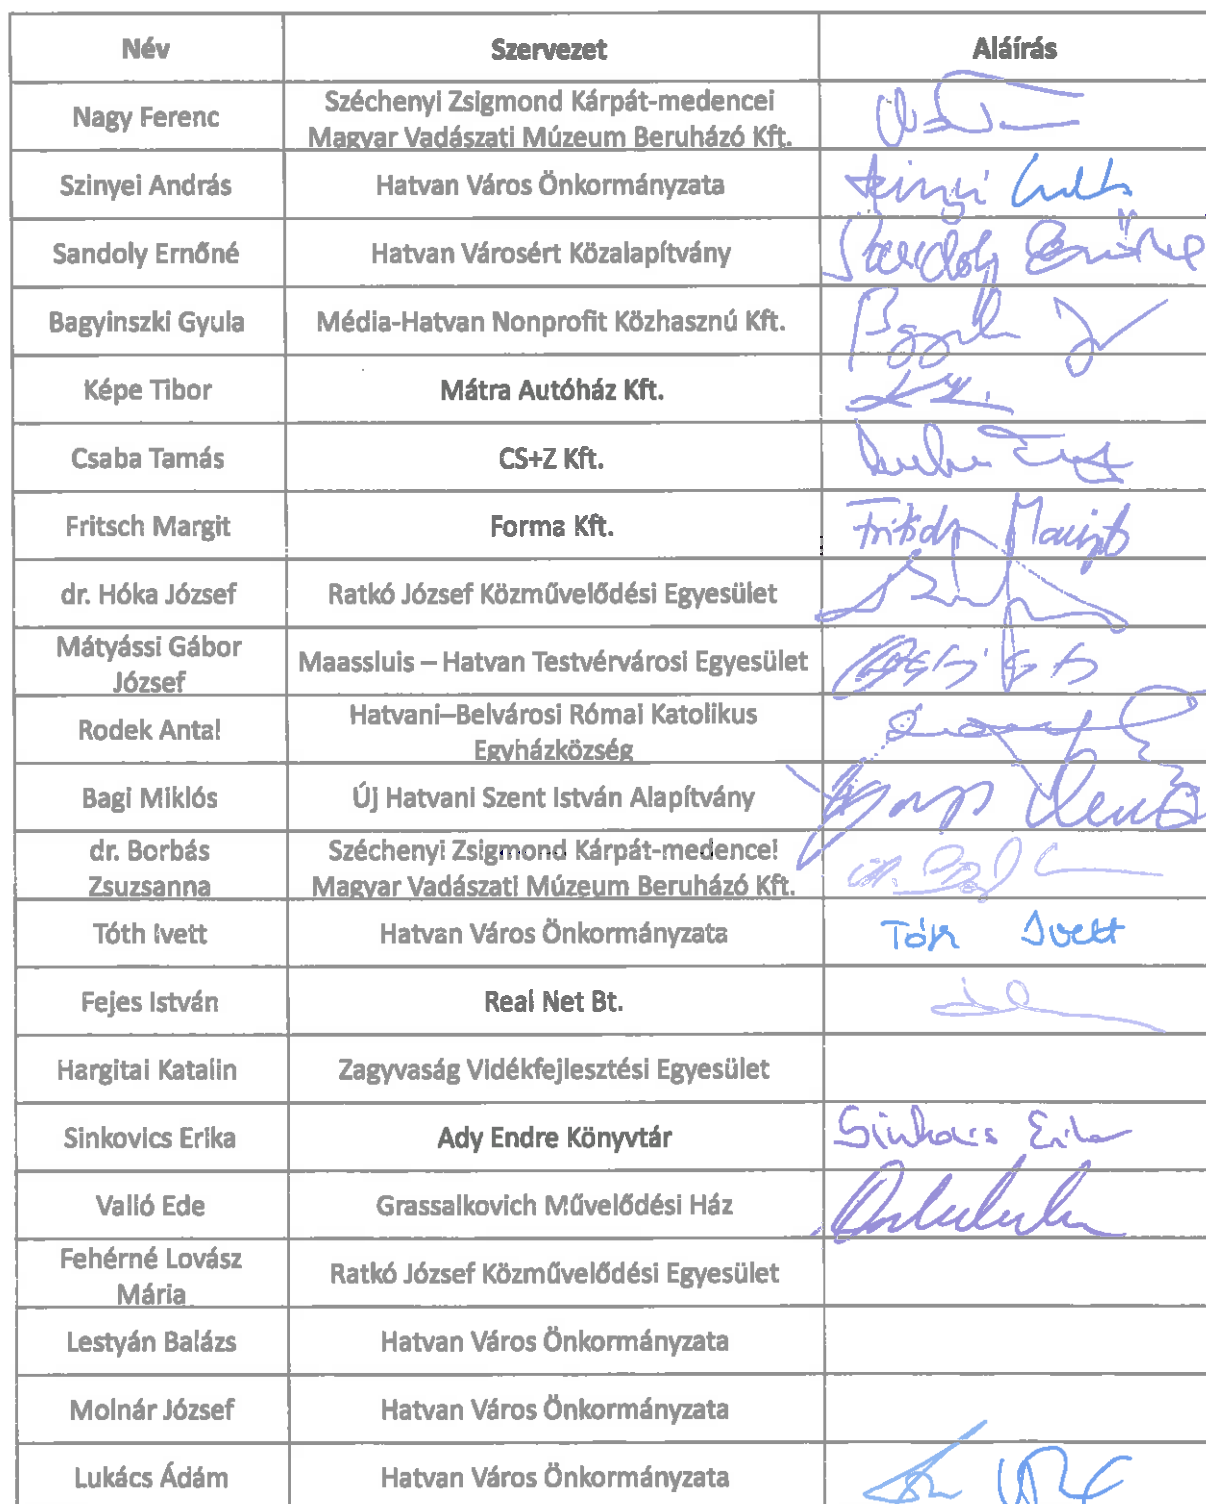 Név Szervezet Aláírás
Nagy Ferenc Széchenyi Zsigmond Kárpát-medencei
Magyar Vadászati Múzeum Beruházó Kft.
Szinyei András Hatvan Város Önkormányzata
Sandoly Ernőné Hatvan Városért Közalapítvány Sandoly Ernőné
Bagyinszki Gyula Média-Hatvan Nonprofit Közhasznú Kft.
Képe Tibor Mátra Autóház Kft.
Csaba Tamás CS+Z Kft.
Fritsch Margit Forma Kft. Fritsch Margit
dr. Hóka József Ratkó József Közművelődési Egyesület
Mátyássi Gábor
József Maassluis – Hatvan Testvérvárosi Egyesület
Rodek Antal Hatvani–Belvárosi Római Katolikus
Egyházközség
Bagi Miklós Új Hatvani Szent István Alapítvány
dr. Borbás Széchenyi Zsigmond Kárpát-medencei
Zsuzsanna Magyar Vadászati Múzeum Beruházó Kft.
Tóth Ivett Hatvan Város Önkormányzata Tóth Ivett
Fejes István Real Net Bt.
Hargitai Katalin Zagyvaság Vidékfejlesztési Egyesület
Sinkovics Erika Ady Endre Könyvtár Sinkovics Erika
Valló Ede Grassalkovich Művelődési Ház
Fehérné Lovász
Mária Ratkó József Közművelődési Egyesület
Lestyán Balázs Hatvan Város Önkormányzata
Molnár József Hatvan Város Önkormányzata
Lukács Ádám Hatvan Város Önkormányzata